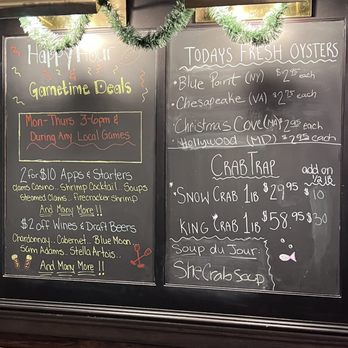 Happy Hour
&
Gametime Deals
Mon-Thurs 3-6pm &
During Any Local Games
2 for $10 Apps & Starters
Clams Casino.. Shrimp Cocktail.. Soups
Steamed Clams.. Firecracker Shrimp
And Many More!!
$2 off Wines & Draft Beers
Chardonnay.. Cabernet.. Blue Moon
Sam Adams.. Stella Artois..
And Many More!!
TODAYS FRESH OYSTERS
• Blue Point (NY) $2.75 each
• Chesapeake (VA) $2.75 each
• Christmas Cove (ME) $2.95 each
• Hollywood (MD) $2.95 each
CRAB TRAP
add on
1/2 lb
• SNOW CRAB 1 lb $29.95 $10
KING CRAB 1 lb $58.95 $30
Soup du Jour:
She Crab Soup